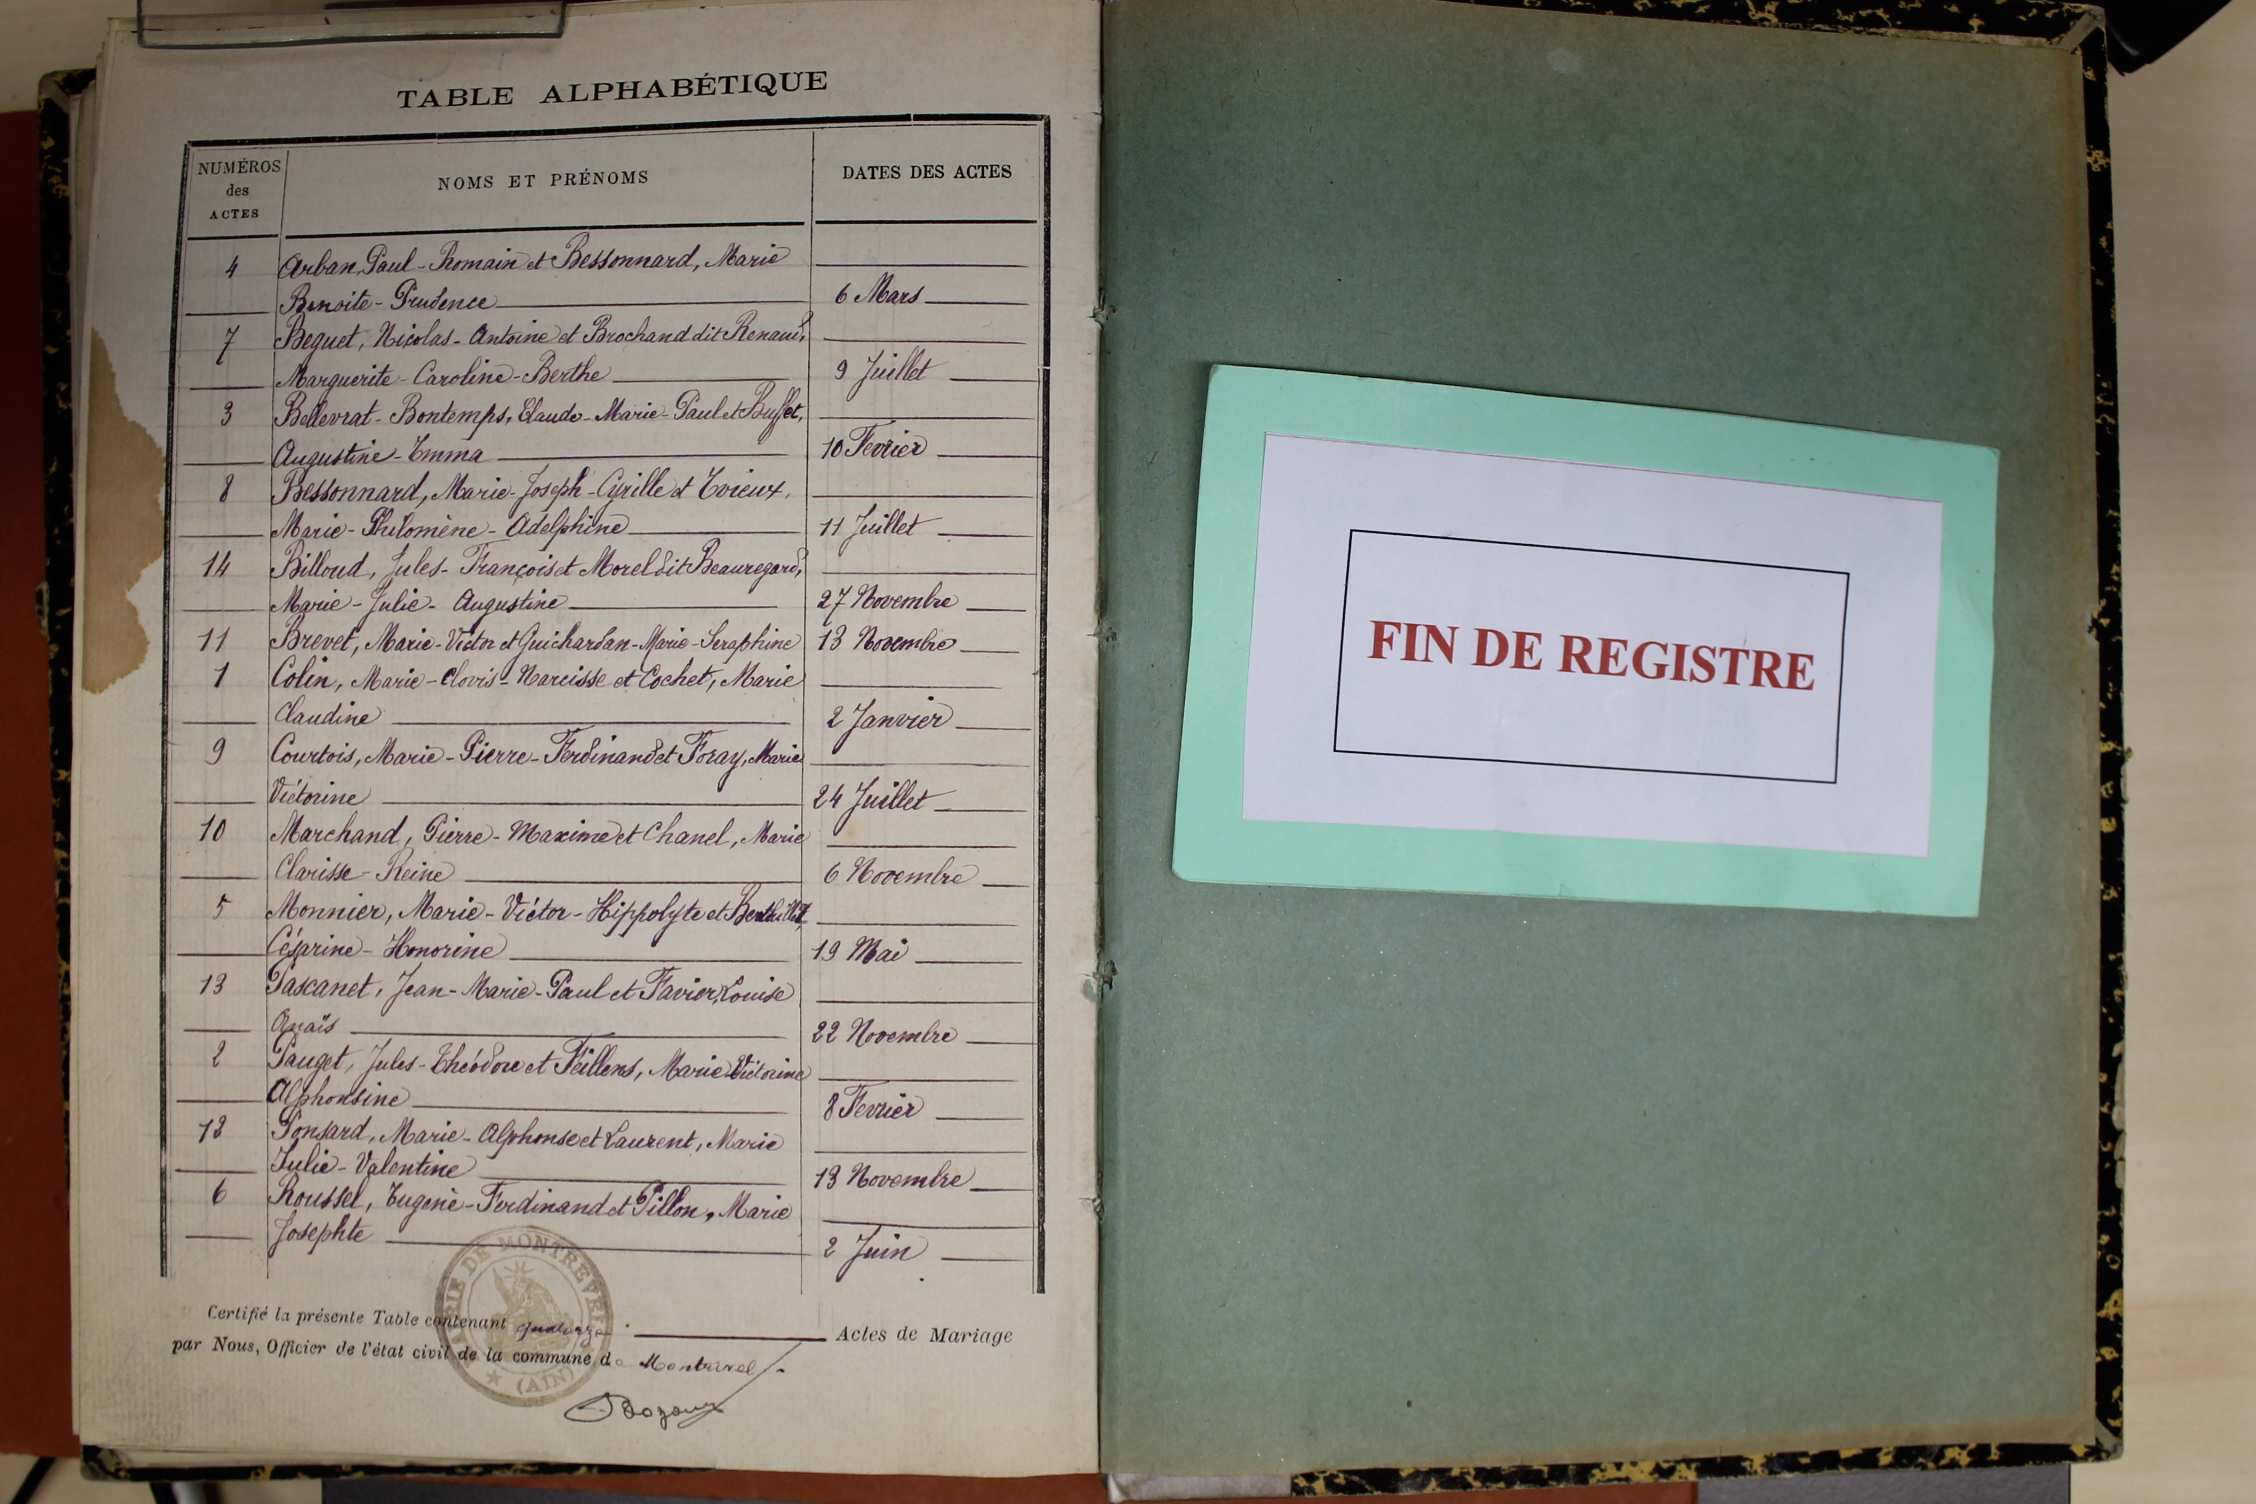 TABLE ALPHABÉTIQUE
NUMÉROS des ACTES
NOMS ET PRÉNOMS
DATES DES ACTES
4 Arban, Paul-Romain et Bessonnard, Marie
Benoite-Prudence 6 Mars
7 Beguet, Nicolas-Antoine et Brochand dit Renaud,
Marguerite-Caroline-Berthe 9 Juillet
3 Bellevrat-Bontemps, Claude-Marie-Paul et Buffet,
Augustine-Emma 10 Fevrier
8 Bessonnard, Marie-Joseph-Cyrille et Evieux,
Marie-Philomène-Adelphine 11 Juillet
14 Billoud, Jules-François et Morel dit Beauregard,
Marie-Julie-Augustine 27 Novembre
11 Brevet, Marie-Victor et Guichardan-Marie-Seraphine 13 Novembre
1 Colin, Marie-Clovis-Narcisse et Cochet, Marie
Claudine 2 Janvier
9 Courtois, Marie-Pierre-Ferdinand et Foray, Marie
Victorine 24 Juillet
10 Marchand, Pierre-Maxime et Chanel, Marie
Clarisse-Reine 6 Novembre
5 Monnier, Marie-Victor-Hippolyte et
Césarine-Honorine 19 Mai
13 Pascanet, Jean-Marie-Paul et Favier, Louise
Anaïs 22 Novembre
2 Pauget, Jules-Théodore et Feillens, Marie Victorine
Alphonsine 8 Fevrier
12 Ponsard, Marie-Alphonse et Laurent, Marie
Julie-Valentine 13 Novembre
6 Roussel, Eugène-Ferdinand et Pillon, Marie
Josephte 2 Juin
MAIRIE DE MONTREVEL
(AIN)
Certifié la présente Table contenant quatorze Actes de Mariage
par Nous, Officier de l'état civil de la commune de Montrevel
FIN DE REGISTRE